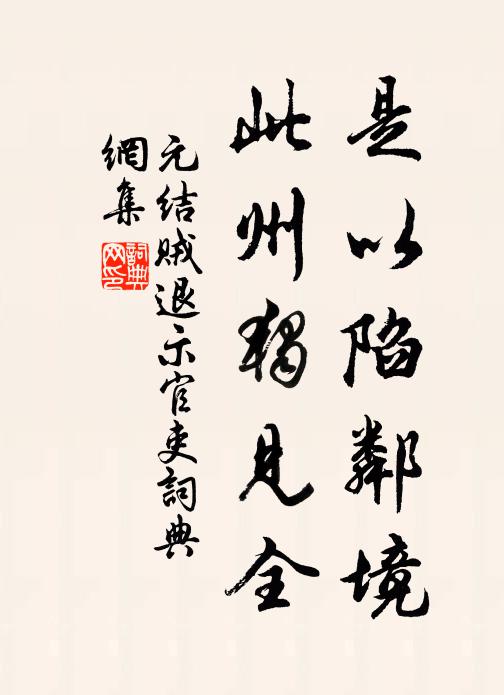 是以陷鄰境
此州獨見全
元結賊退示官吏詞典
網集
詞典
网印